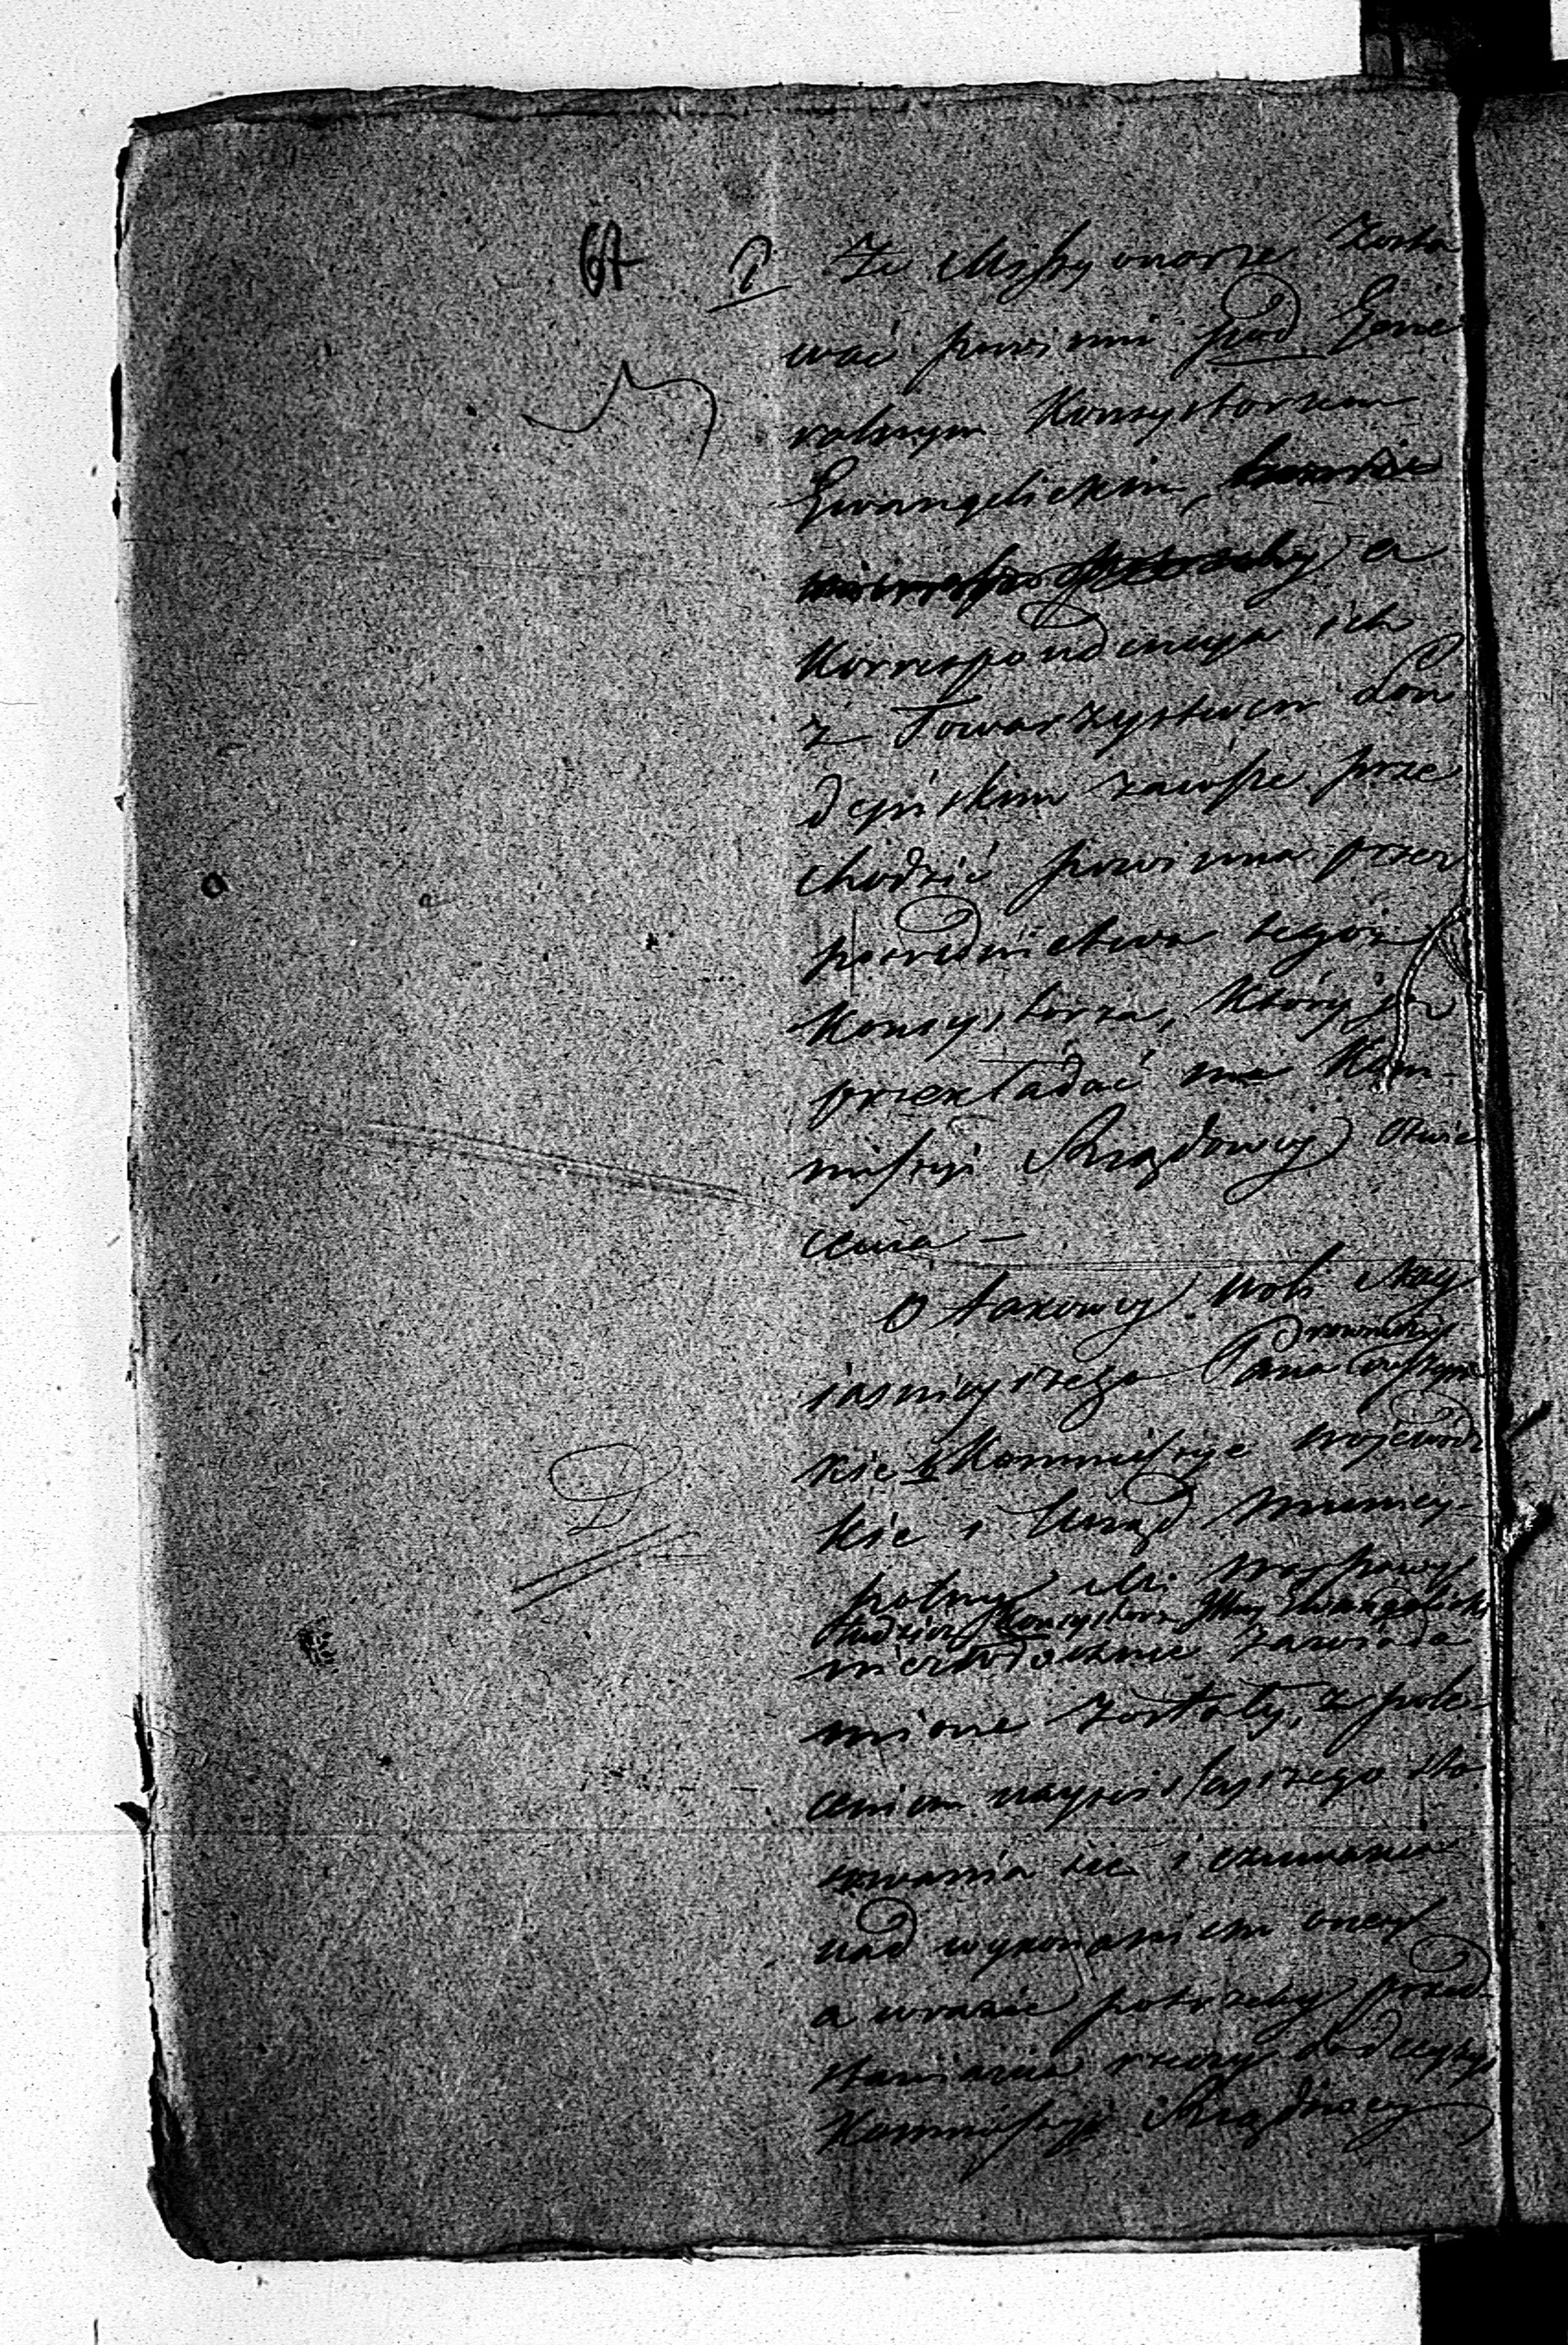 Że Missyonarze zosta
wać powinni pod Gene
ralnym Konsystorzem
Ewangelickim, a
Korrespondencya ich
z Towarzystwem Lon
dyńskim zawsze prze
chodzić powinna przez
pośrednictwo tegoż
Konsystorza, który ją
przekładać ma Kom-
missyi Rządowey Oświe
cenia —
O takowey woli Nay
iaśnieyszego Pana wszyst
kie Kommissye Wojewódz
kie i Urząd Municy-
palny M. Warszawy
tudzież Konsystorz Ewangelicki
niezwłocznie zawiado
mione zostały, z pole
ceniem nayściśleyszego sto
sowania się i czuwania
nad wykonaniem oney
a w razie potrzeby przed
stawiania rzeczy decyzyi
Kommissyi Rządowey